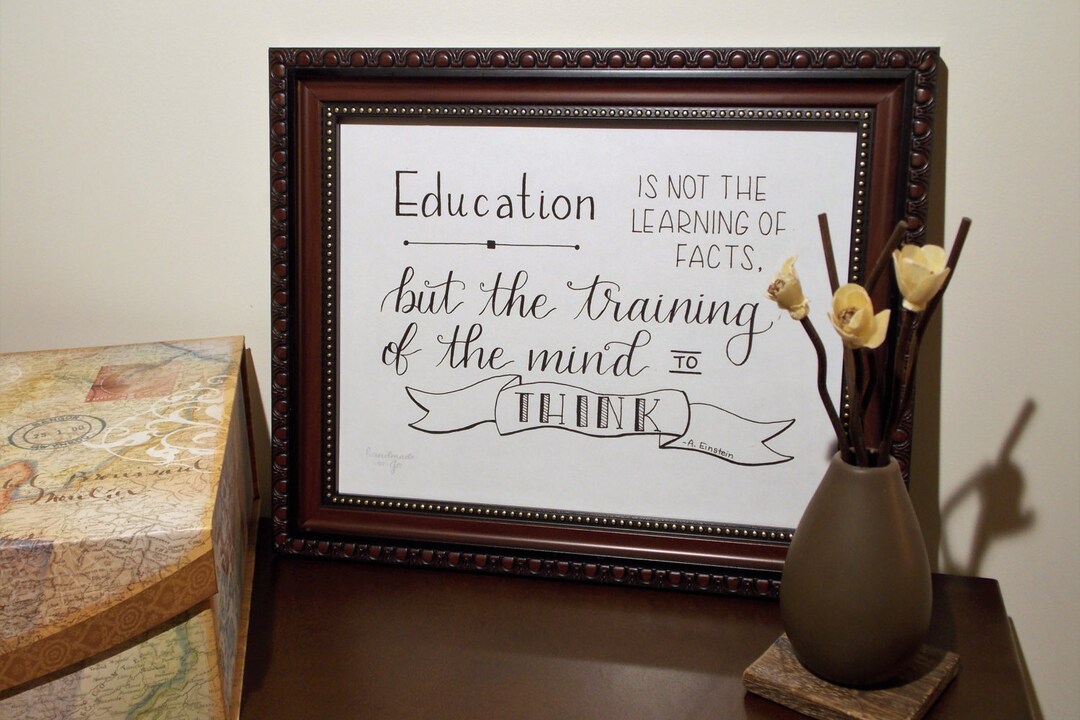 Education
IS NOT THE
LEARNING OF
FACTS,
but the training
of the mind TO
THINK
-A. Einstein